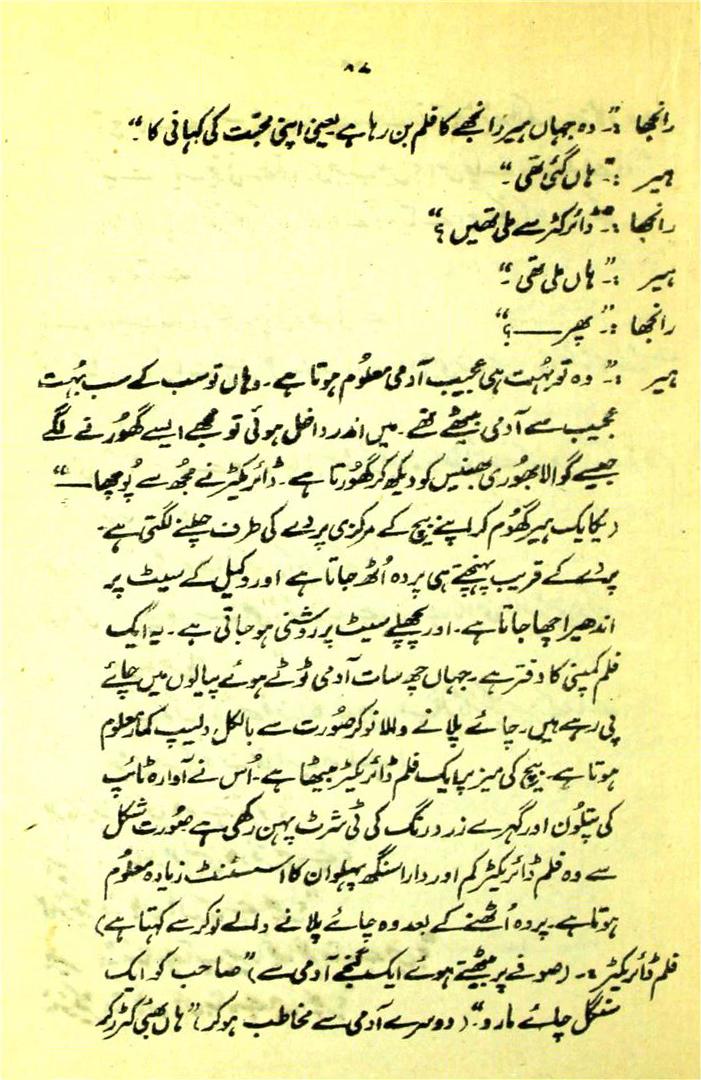 ۸۷
رانجھا :۔ "وہ جہاں ہیر رانجھے کا فلم بن رہا ہے یعنی اپنی محبت کی کہانی کا"
ہیر :۔ "ہاں گئی تھی۔"
رانجھا :۔ "ڈائرکٹر سے ملی تھیں؟"
ہیر :۔ "ہاں ملی تھی۔"
رانجھا :۔ "پھر ——؟"
ہیر :۔ "وہ تو بہُت ہی عجیب آدمی معلوُم ہوتا ہے۔ وہاں تو سب کے سب بہُت
عجیب سے آدمی بیٹھے تھے۔ میں اندر داخل ہوئی تو مجھے ایسے گھوُرنے لگے
جیسے گوالا بھوُری بھینس کو دیکھ کر گھوُرتا ہے۔ ڈائریکٹر نے مجُھ سے پوُچھا —"
(یکایک ہیر گھوُم کر اسٹیج کے مرکزی پردے کی طرف چلنے لگتی ہے۔
پردے کے قریب پہنچتے ہی پردہ اُٹھ جاتا ہے اور وکیل کے سیٹ پر
اندھیرا چھا جاتا ہے۔ اور پچھلے سیٹ پر روشنی ہو جاتی ہے۔ یہ ایک
فلم کمپنی کا دفتر ہے۔ جہاں چھ سات آدمی ٹوُٹے ہوئے پیالوں میں چائے
پی رہے ہیں۔ چائے پلانے والا نوکر صوُرت سے بالکل دلیپ کمار معلوم
ہوتا ہے۔ بیچ کی میز پر ایک فلم ڈائریکٹر بیٹھا ہے۔ اُس نے آوارہ ٹائپ
کی پتلوُن اور گہرے زرد رنگ کی ٹی شرٹ پہن رکھی ہے صوُرت شکل
سے وہ فلم ڈائریکٹر کم اور دارا سنگھ پہلوان کا اسسٹنٹ زیادہ معلوُم
ہوتا ہے۔ پردہ اُٹھنے کے بعد وہ چائے پلانے والے نوکر سے کہتا ہے)
فلم ڈائریکٹر :۔ (صوفے پر بیٹھتے ہوئے ایک گنجے آدمی سے) "صاحب کو ایک
سنگل چائے مارو۔" (دوسرے آدمی سے مخاطب ہو کر) "ہاں بھئی کٹرکر